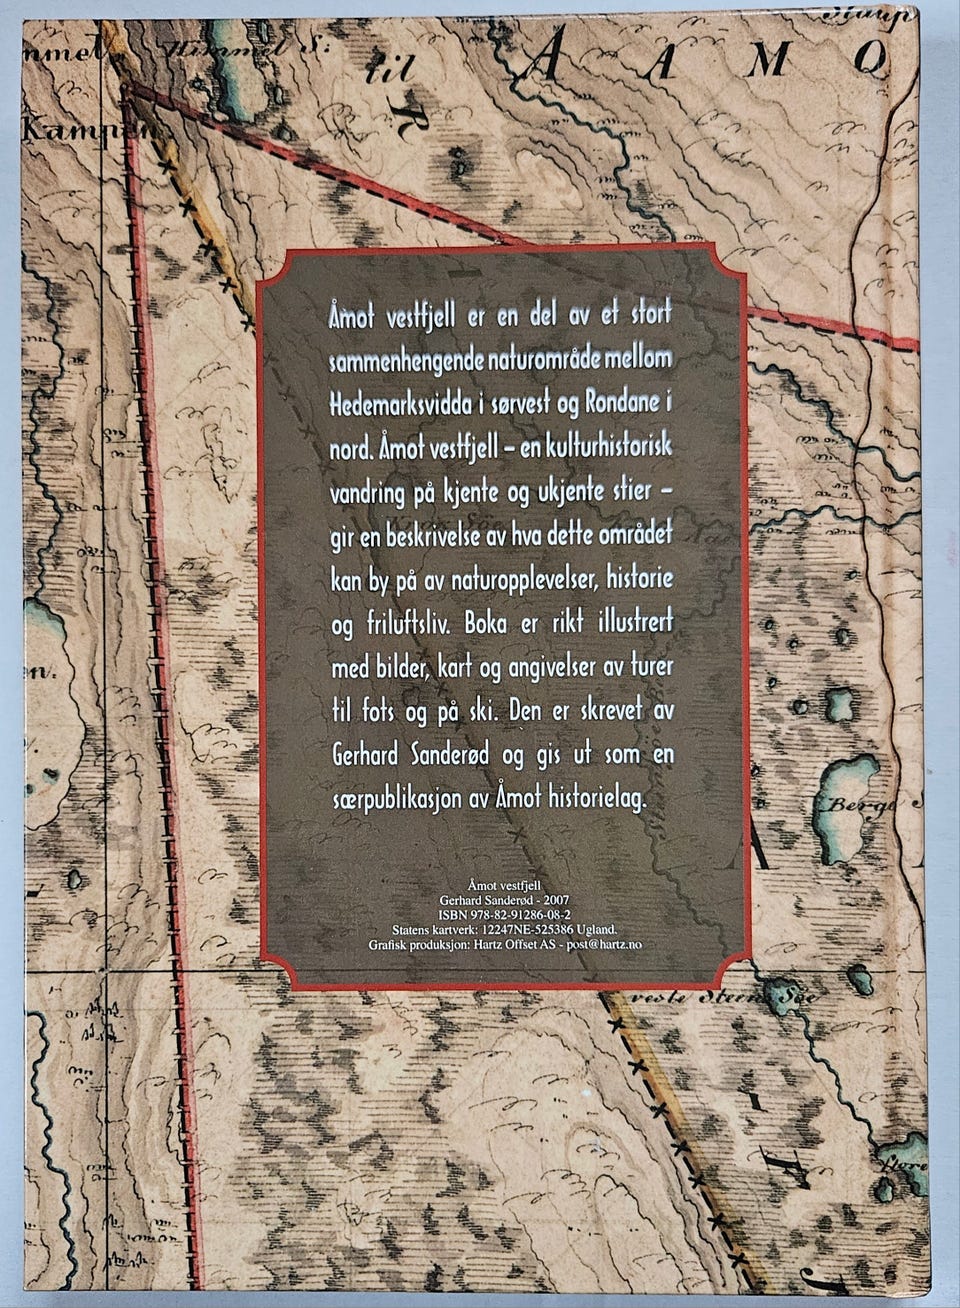 Himmel S:
til
A A M O
Kampen
Åmot vestfjell er en del av et stort
sammenhengende naturområde mellom
Hedemarksvidda i sørvest og Rondane i
nord. Åmot vestfjell – en kulturhistorisk
vandring på kjente og ukjente stier –
gir en beskrivelse av hva dette området
kan by på av naturopplevelser, historie
og friluftsliv. Boka er rikt illustrert
med bilder, kart og angivelser av turer
til fots og på ski. Den er skrevet av
Gerhard Sanderød og gis ut som en
særpublikasjon av Åmot historielag.
Åmot vestfjell
Gerhard Sanderød - 2007
ISBN 978-82-91286-08-2
Statens kartverk: 12247NE-525386 Ugland.
Grafisk produksjon: Hartz Offset AS - post@hartz.no